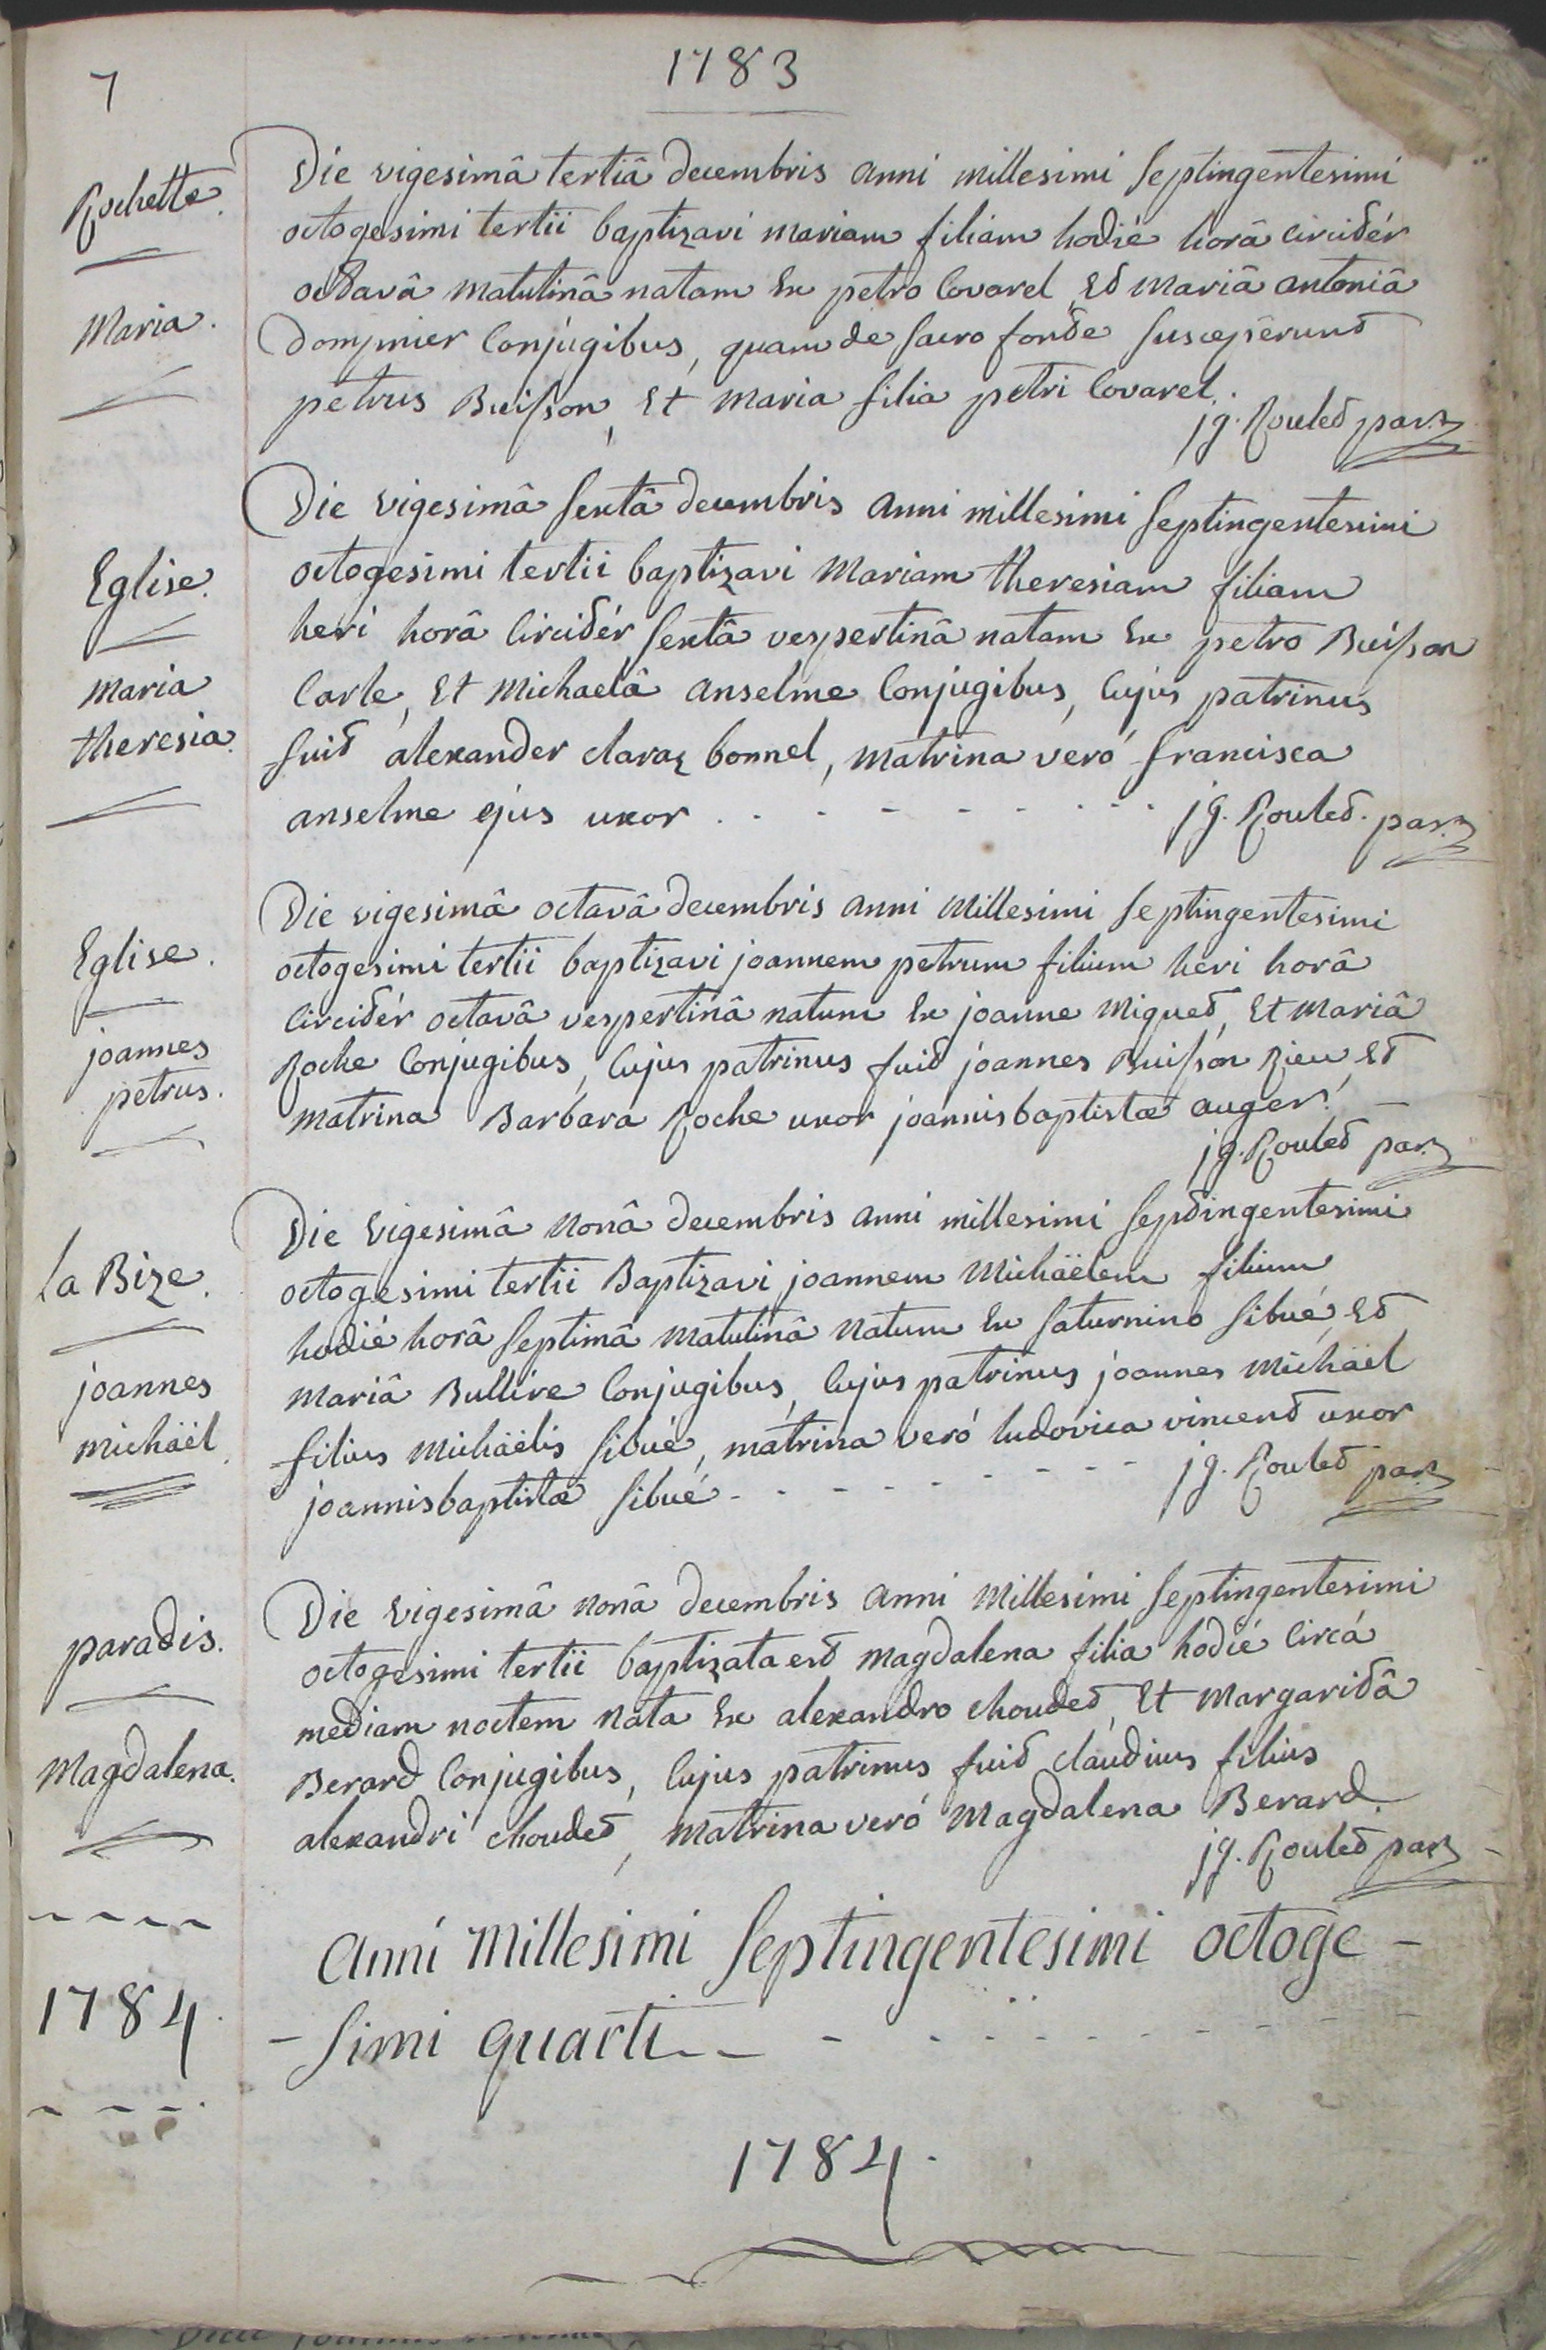 7
1783
Rochette.
Maria.
Die vigesimâ tertiâ decembris anni millesimi septingentesimi
octogesimi tertii baptizavi mariam filiam hodié horâ circitér
octavâ matutinâ natam ex petro Covarel, et mariâ antoniâ
dompnier Conjugibus, quam de sacro fonte suscepêrunt
petrus Buisson, et maria filia petri Covarel.
jg. Roulet par.
Eglise.
maria
theresia.
Die vigesimâ sextâ decembris anni millesimi septingentesimi
octogesimi tertii baptizavi Mariam theresiam filiam
heri horâ Circitér sextâ vespertinâ natam ex petro Buisson
Carle, et Michaelâ anselme Conjugibus, Cujus patrinus
fuit alexander claraz bonnel, matrina veró francisca
anselme ejus uxor . - - - - - - - jg. Roulet. par.
Eglise.
joannes
petrus.
Die vigesimâ octavâ decembris anni millesimi septingentesimi
octogesimi tertii baptizavi joannem petrum filium heri horâ
Circitér octavâ vespertinâ natum ex joanne Miquet, et mariâ
Roche Conjugibus, Cujus patrinus fuit joannes Buisson Rieu, et
matrina Barbara Roche uxor joannisbaptistæ auger. -
jg. Roulet par.
la Bize.
joannes
michäel.
Die vigesimâ nonâ decembris anni millesimi septingentesimi
octogesimi tertii Baptizavi joannem Michäelem filium
hodié horâ septimâ matutinâ natum ex saturnino sibué, et
mariâ Bullire Conjugibus, Cujus patrinus joannes Michäel
filius Michäelis sibué, matrina veró ludovica vincent uxor
joannisbaptistæ sibué - - - - - - - - - jg. Roulet par.
paradis.
Magdalena.
Die vigesimâ nonâ decembris anni millesimi septingentesimi
octogesimi tertii baptizata est magdalena filia hodié Circá
mediam noctem nata ex alexandro choudet, et margaritâ
Berard Conjugibus, Cujus patrinus fuit claudius filius
alexandri choudet, matrina veró Magdalena Berard.
jg. Roulet par.
1784.
Anni millesimi septingentesimi octoge -
- simi quarti - - - - - - - - - -
1784.